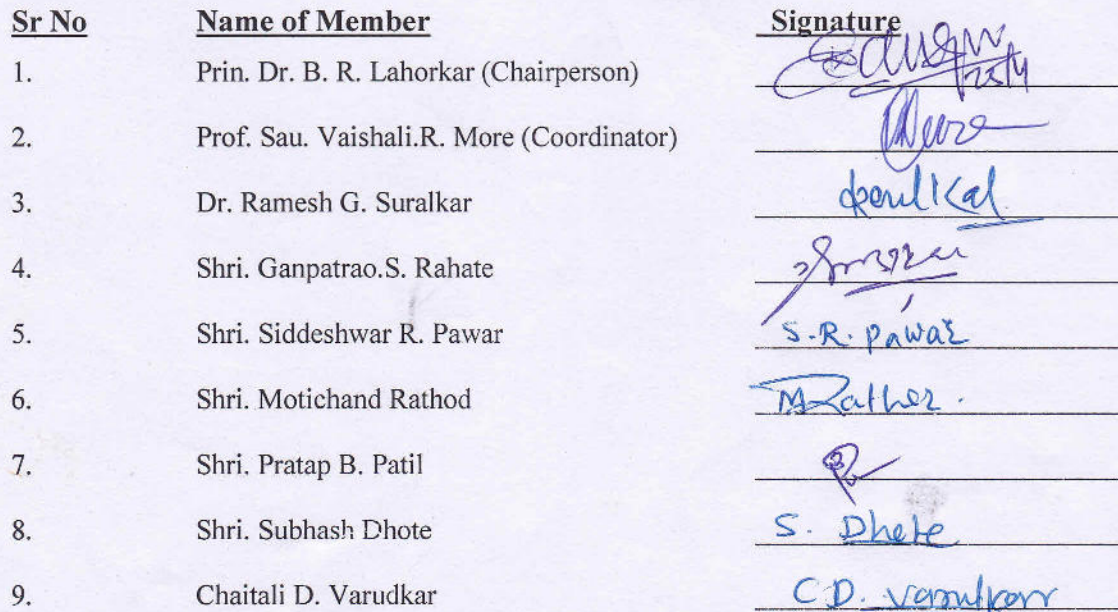 Sr No Name of Member Signature
1. Prin. Dr. B. R. Lahorkar (Chairperson)
2. Prof. Sau. Vaishali.R. More (Coordinator)
3. Dr. Ramesh G. Suralkar
4. Shri. Ganpatrao.S. Rahate
5. Shri. Siddeshwar R. Pawar S.R. Pawar
6. Shri. Motichand Rathod
7. Shri. Pratap B. Patil
8. Shri. Subhash Dhote S. Dhote
9. Chaitali D. Varudkar C.D.